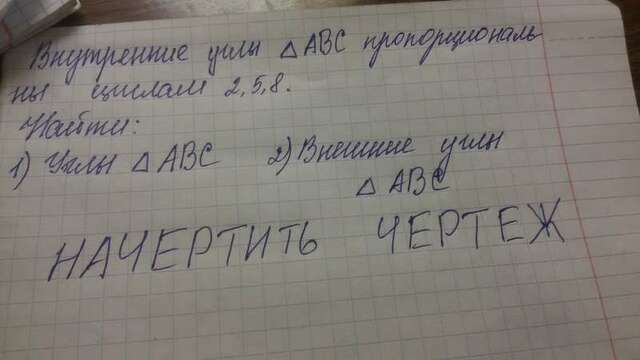 Внутренние углы △ABC пропорциональ
ны числам 2,5,8.
Найти:
1) Углы △ABC 2) Внешние углы
△ABC
НАЧЕРТИТЬ ЧЕРТЕЖ